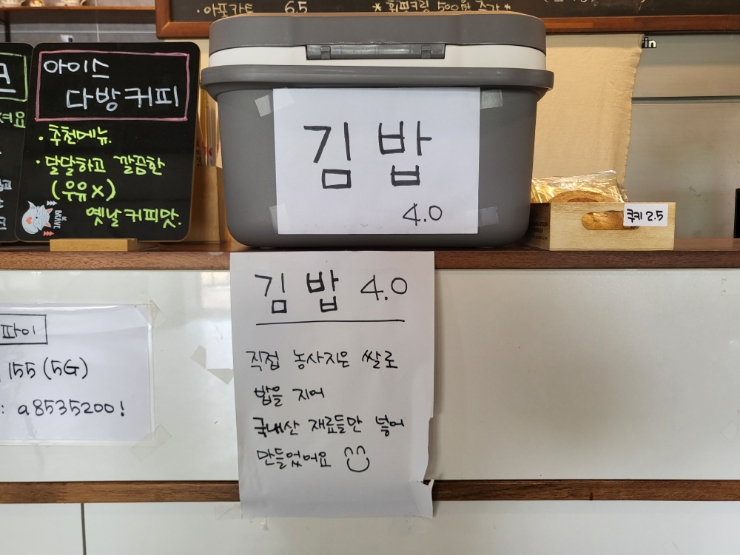 아포가토 6.5 *휘핑크림 500원 추가*
아이스
다방커피
·추천메뉴.
·달달하고 깔끔한
(우유X)
옛날커피맛.
김밥
4.0
쿠키 2.5
김밥 4.0
직접 농사지은 쌀로
밥을 지어
국내산 재료들만 넣어
만들었어요
파이
155(5G)
: a8535200!